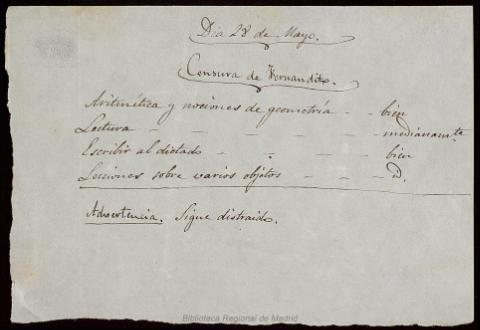 Dia 28 de Mayo.
Censura de Fernandito.
Aritmética y nociones de geometría - - bien
Lectura - - - - - - medianamte
Escribir al dictado - - - - bien
Lecciones sobre varios objetos - - - id.
Advertencia. Sigue distraido.
Biblioteca Regional de Madrid